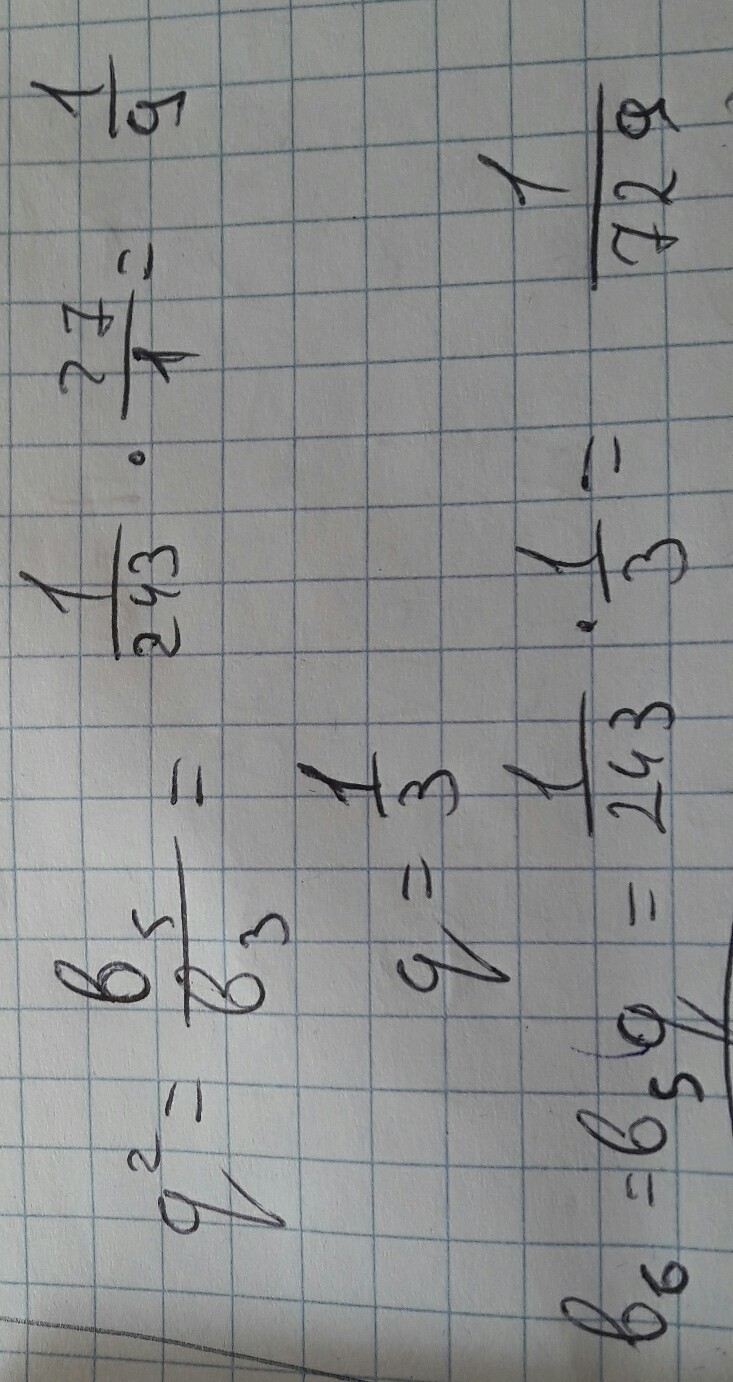 q² = b₅/b₃ = 1/243 · 27/1 = 1/9
q = 1/3
b₆ = b₅q = 1/243 · 1/3 = 1/729